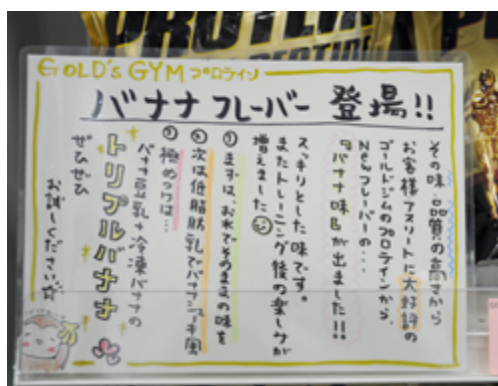 PROTEIN
GOLD'S GYM プロライン
バナナフレーバー 登場!!
その味・品質の高さから
お客様アスリートに大好評の
ゴールドジムのプロラインから、
Newフレーバーの…
『バナナ味』が出ました!!
スッキリとした味です。
またトレーニング後の楽しみが
増えました
① まずは、お水でそのままの味を
② 次は低脂肪乳でバナナジュース風
③ 極めつけは…
バナナ豆乳+冷凍バナナの
トリプルバナナ
ぜひぜひ
お試しください☆